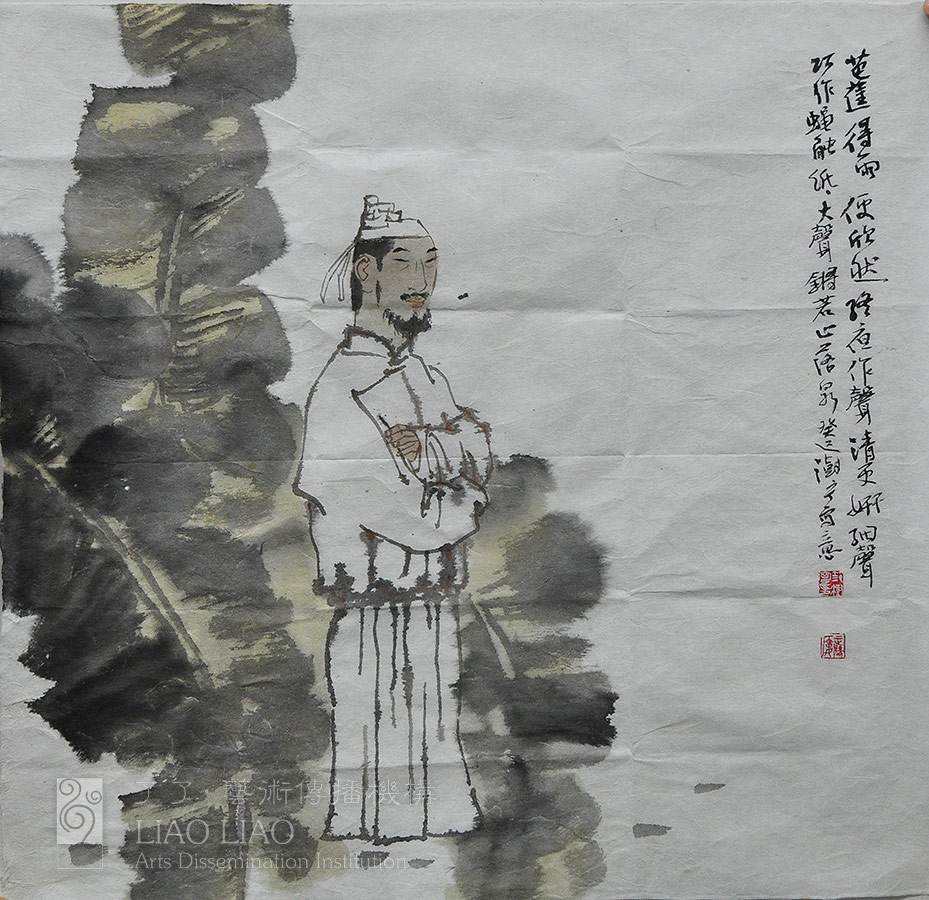 芭蕉得雨便欣然終夜作聲清更妍細聲
巧作蠅触紙大聲鏘若山落泉癸巳寫意
了了·藝術傳播機構
LIAO LIAO
Arts Dissemination Institution